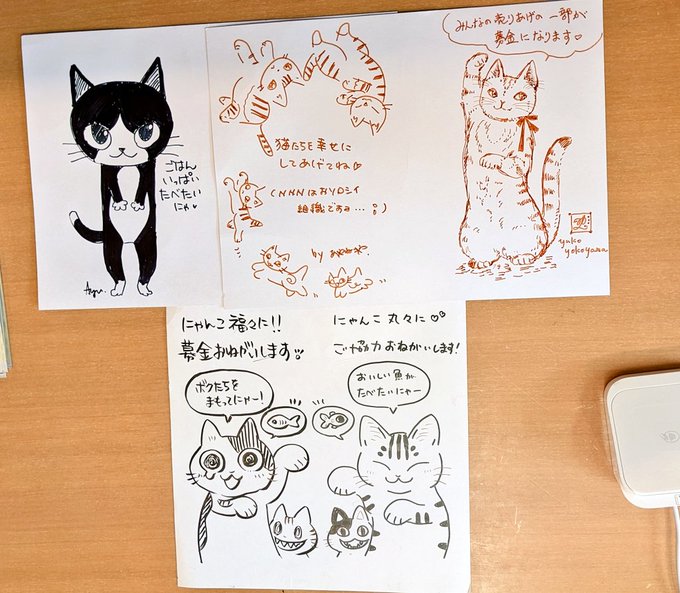 ごはん
いっぱい
たべたい
にゃ
猫たちを幸せに
してあげてね♡
(NNNはおソロシイ
組織ですョ…)
by
みんなの売りあげの一部が
募金になります♡
yuko
yokoyama
にゃんこ福々に!!
募金おねがいします
ボクたちを
まもってにゃー!
にゃんこ丸々に♡♡
ご協力おねがいします!
おいしい魚が
たべたいにゃー